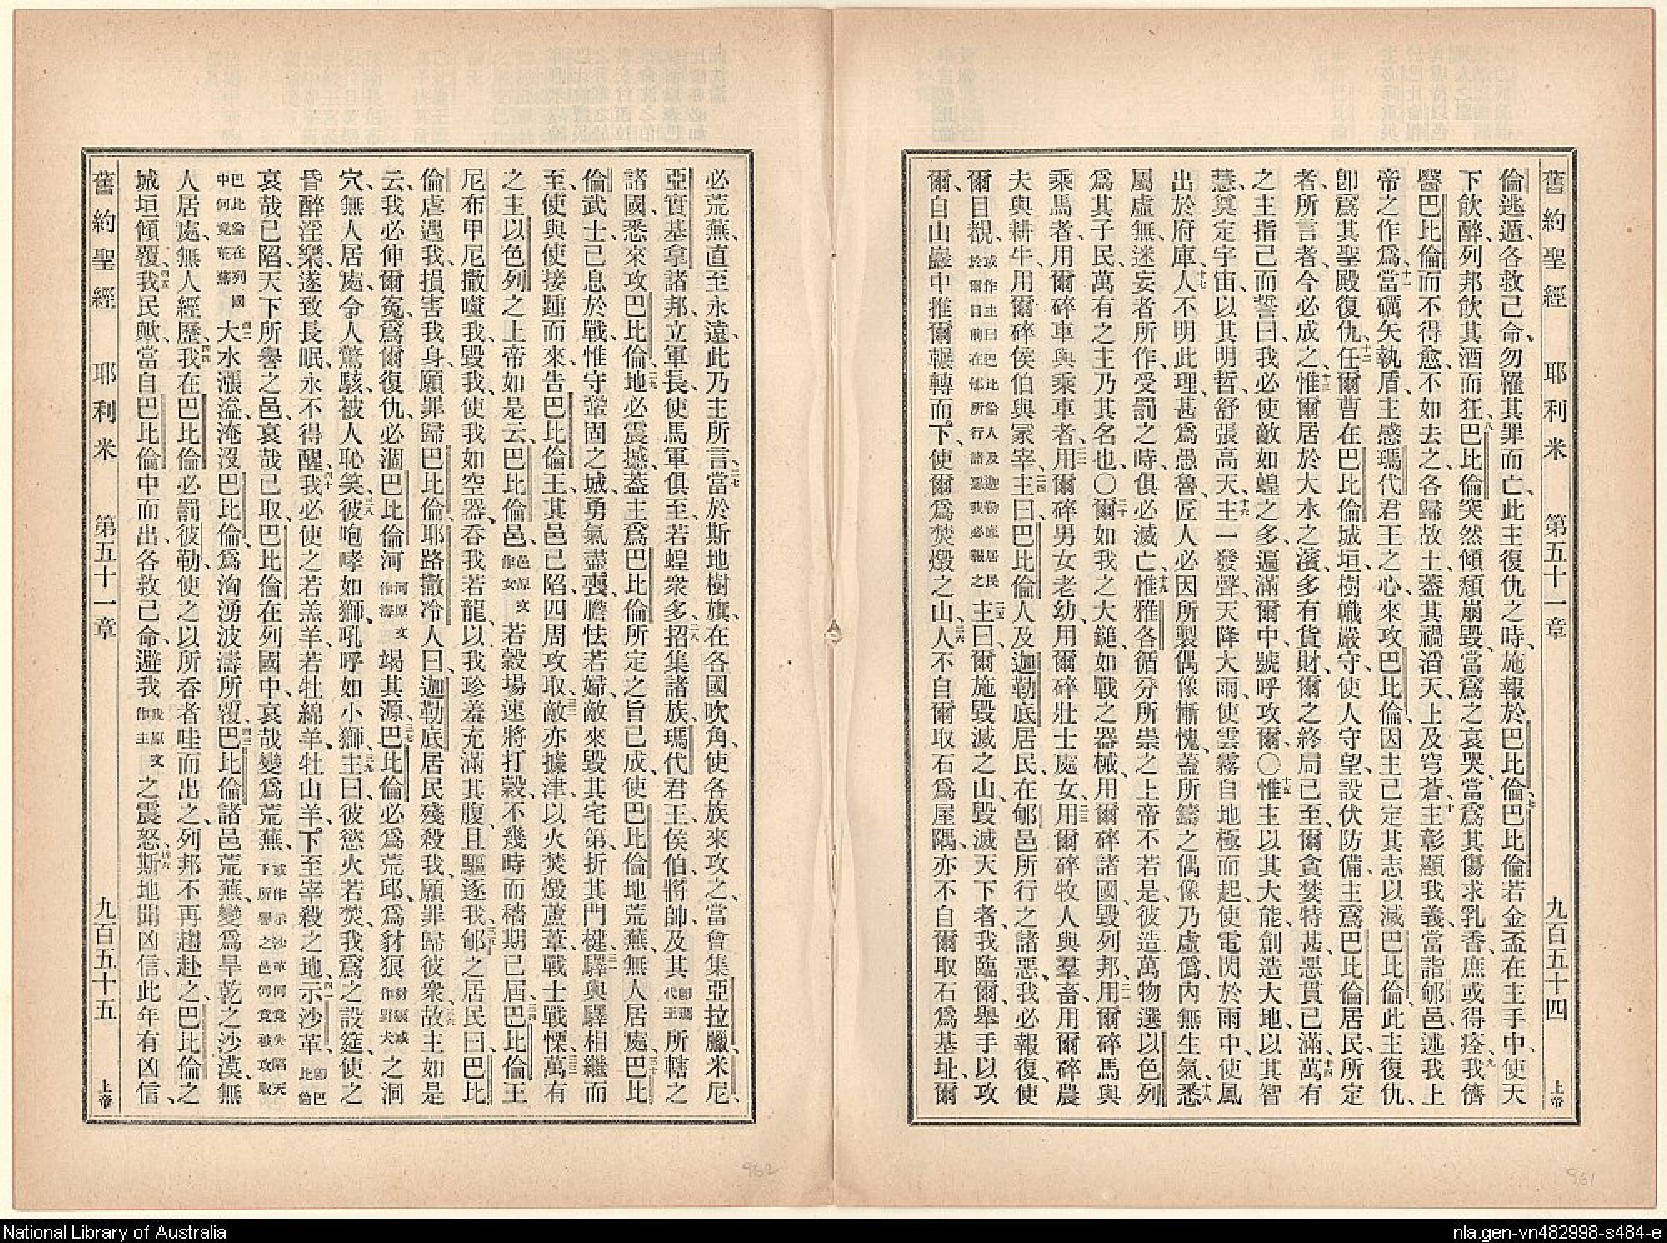 舊約聖經 耶利米 第五十一章 九百五十四 上帝
倫逃遁、各救己命、勿罹其罪而亡、此主復仇之時、施報於巴比倫、七巴比倫若金盃在主手中、使天
下飲醉、列邦飲其酒而狂、八巴比倫突然傾頹崩毀、當爲之哀哭、當爲其傷求乳香、庶或得痊、九我儕
醫巴比倫而不得愈、不如去之、各歸故土、蓋其禍滔天、上及穹蒼、十主彰顯我義、當詣郇邑述我上
帝之作爲、十一當礪矢執盾、主感瑪代君王之心、來攻巴比倫、因主已定其志以滅巴比倫、此主復仇、
卽爲其聖殿復仇、十二任爾曹在巴比倫城垣、樹幟嚴守、使人守望、設伏防備、主爲巴比倫居民所定
者、所言者、今必成之、十三惟爾居於大水之濱、多有貨財、爾之終局已至、爾貪婪特甚、惡貫已滿、十四萬有
之主指己而誓曰、我必使敵如蝗之多、遍滿爾中、號呼攻爾、〇十五惟主以其大能創造大地、以其智
慧奠定宇宙、以其明哲舒張高天、十六主一發聲、天降大雨、使雲霧自地極而起、使電閃於雨中、使風
出於府庫、十七人不明此理、甚爲愚魯、匠人必因所製偶像慚愧、蓋所鑄之偶像、乃虛僞、內無生氣、十八悉
屬虛無、迷妄者所作、受罰之時、俱必滅亡、十九惟雅各循分所崇之上帝不若是、彼造萬物、選以色列
爲其子民、萬有之主乃其名也、〇二十爾如我之大鎚、如戰之器械、用爾碎諸國、毀列邦、二一用爾碎馬與
乘馬者、用爾碎車與乘車者、二二用爾碎男女老幼、用爾碎壯士處女、二三用爾碎牧人與羣畜、用爾碎農
夫與耕牛、用爾碎侯伯與冢宰、二四主曰、巴比倫人及迦勒底居民、在郇邑所行之諸惡、我必報復、使
爾目覩、或作主曰巴比倫人及迦勒底居民於爾目前在郇所行諸惡我必報之 二五主曰、爾施毀滅之山、毀滅天下者、我臨爾、舉手以攻
爾、自山巖中推爾輾轉而下、使爾爲焚燬之山、二六人不自爾取石爲屋隅、亦不自爾取石爲基址、爾
必荒蕪、直至永遠、此乃主所言、二七當於斯地樹旗、在各國吹角、使各族來攻之、當會集亞拉臘、米尼、
亞實基拿諸邦、立軍長、使馬軍俱至、若蝗衆多、二八招集諸族、瑪代君王侯伯將帥、及其卽瑪代王所轄之
諸國、悉來攻巴比倫、二九地必震撼、蓋主爲巴比倫所定之旨已成、使巴比倫地荒蕪、無人居處、三十巴比
倫武士已息於戰、惟守鞏固之城、勇氣盡喪、膽怯若婦、敵來毀其宅第、折其門楗、三一驛與驛相繼而
至、使與使接踵而來、告巴比倫王、其邑已陷、四周攻取、三二敵亦據津、以火焚燬蘆葦、戰士戰慄、三三萬有
之主以色列之上帝如是云、巴比倫邑邑原文作女 若穀場速將打穀、不幾時而穡期已屆、三四巴比倫王
尼布甲尼撒噬我、毀我、使我如空器、吞我若龍、以我珍羞充滿其腹、且驅逐我、三五郇之居民曰、巴比
倫虐遇我、損害我身、願罪歸巴比倫、耶路撒冷人曰、迦勒底居民殘殺我、願罪歸彼衆、三六故主如是
云、我必伸爾冤、爲爾復仇、必涸巴比倫河河原文作海 竭其源、三七巴比倫必爲荒邱、爲豺狼豺狼或作野犬之洞
穴、無人居處、令人驚駭、被人恥笑、三八彼咆哮如獅、吼呼如小獅、三九主曰、彼慾火若焚、我爲之設筵、使之
昏醉淫樂、遂致長眠、永不得醒、四十我必使之若羔羊、若牡綿羊、牡山羊、下至宰殺之地、四一示沙革卽巴比倫
哀哉已陷、天下所譽之邑、哀哉已取、巴比倫在列國中、哀哉變爲荒蕪、或作示沙革何竟失陷天下所譽之邑何竟被攻取
巴比倫在列國中何竟荒蕪 四二大水漲溢、淹沒巴比倫、爲洶湧波濤所覆、四三巴比倫諸邑荒蕪、變爲旱乾之沙漠、無
人居處、無人經歷、四四我在巴比倫必罰彼勒、使之以所吞者哇而出之、列邦不再趨赴之、巴比倫之
城垣傾覆、四五我民歟、當自巴比倫中而出、各救己命、避我我原文作主之震怒、四六斯地聞凶信、此年有凶信、
舊約聖經 耶利米 第五十一章 九百五十五 上帝
961
962
National Library of Australia
nla.gen-vn482998-s484-e